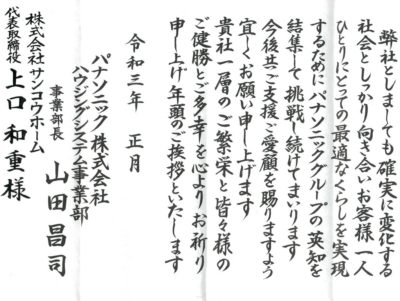 弊社としましても確実に変化する
社会としっかり向き合いお客様一人
ひとりにとっての最適なくらしを実現
するためにパナソニックグループの英知を
結集して挑戦し続けてまいります
今後共ご支援ご愛顧を賜りますよう
宜しくお願い申し上げます
貴社一層のご繁栄と皆々様の
ご健勝とご多幸を心よりお祈り
申し上げ年頭のご挨拶といたします
令和三年 正月
パナソニック株式会社
ハウジングシステム事業部
事業部長 山田昌司
株式会社サンコウホーム
代表取締役 上口和重様